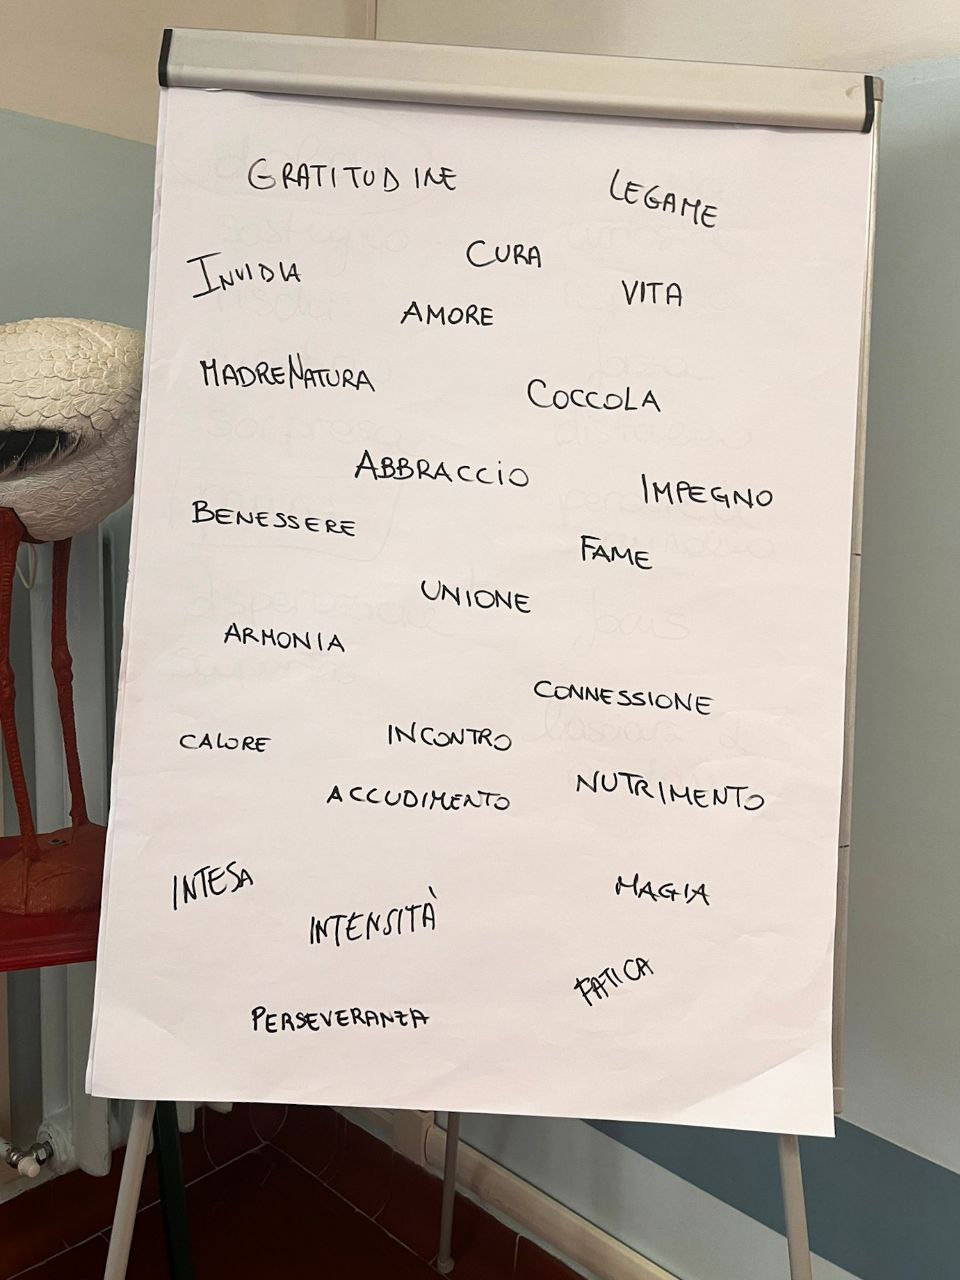 GRATITUDINE
LEGAME
CURA
INVIDIA
VITA
AMORE
MADRE NATURA
COCCOLA
ABBRACCIO
IMPEGNO
BENESSERE
FAME
UNIONE
ARMONIA
CONNESSIONE
CALORE
INCONTRO
NUTRIMENTO
ACCUDIMENTO
INTESA
MAGIA
INTENSITÀ
FATICA
PERSEVERANZA